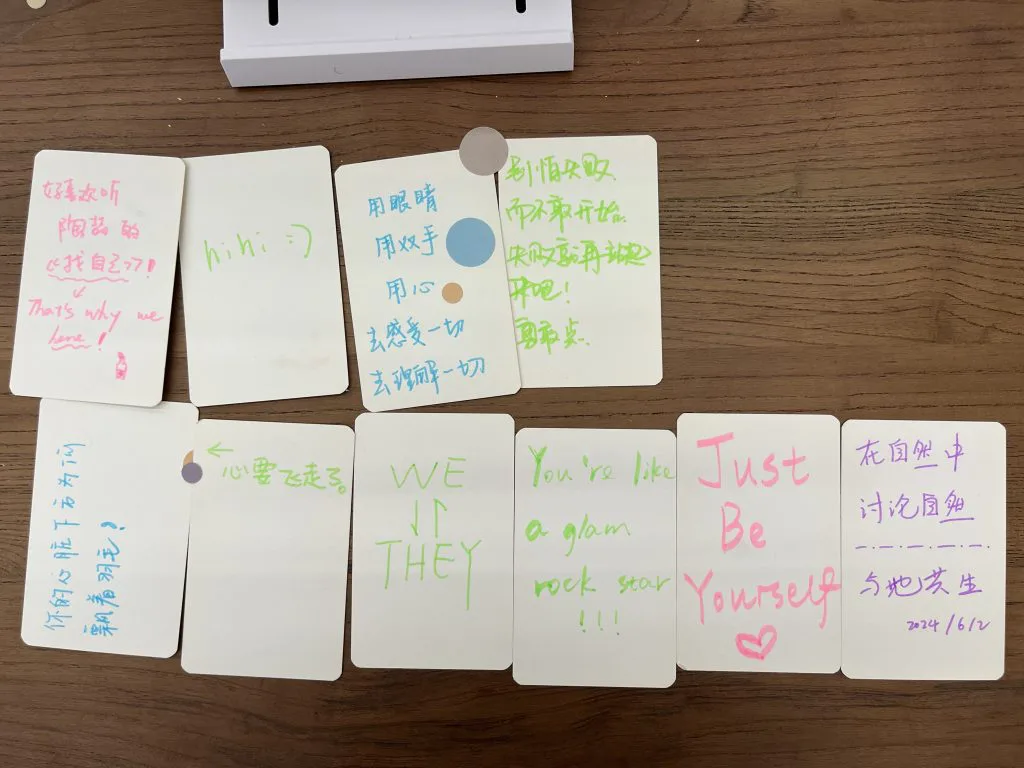 好喜欢听
陶喆的
《找自己》!
↙
That's why we
here!
hihi :)
用眼睛
用双手
用心
去感受一切
去理解一切
别怕失败
而不敢开始.
失败后再
来吧!
勇敢点.
你的心脏下方为何
飘着羽毛?
←
心要飞走了。
WE
↓↑
THEY
You're like
a glam
rock star
!!!
Just
Be
Yourself
♡
在自然中
讨论自然
与地共生
2024/6/2